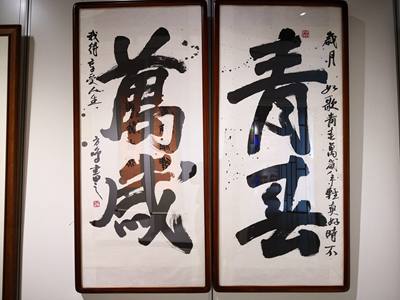 青春
歲月如歌青春萬歲年輕真好時不
萬歲
我待享受人生
書之